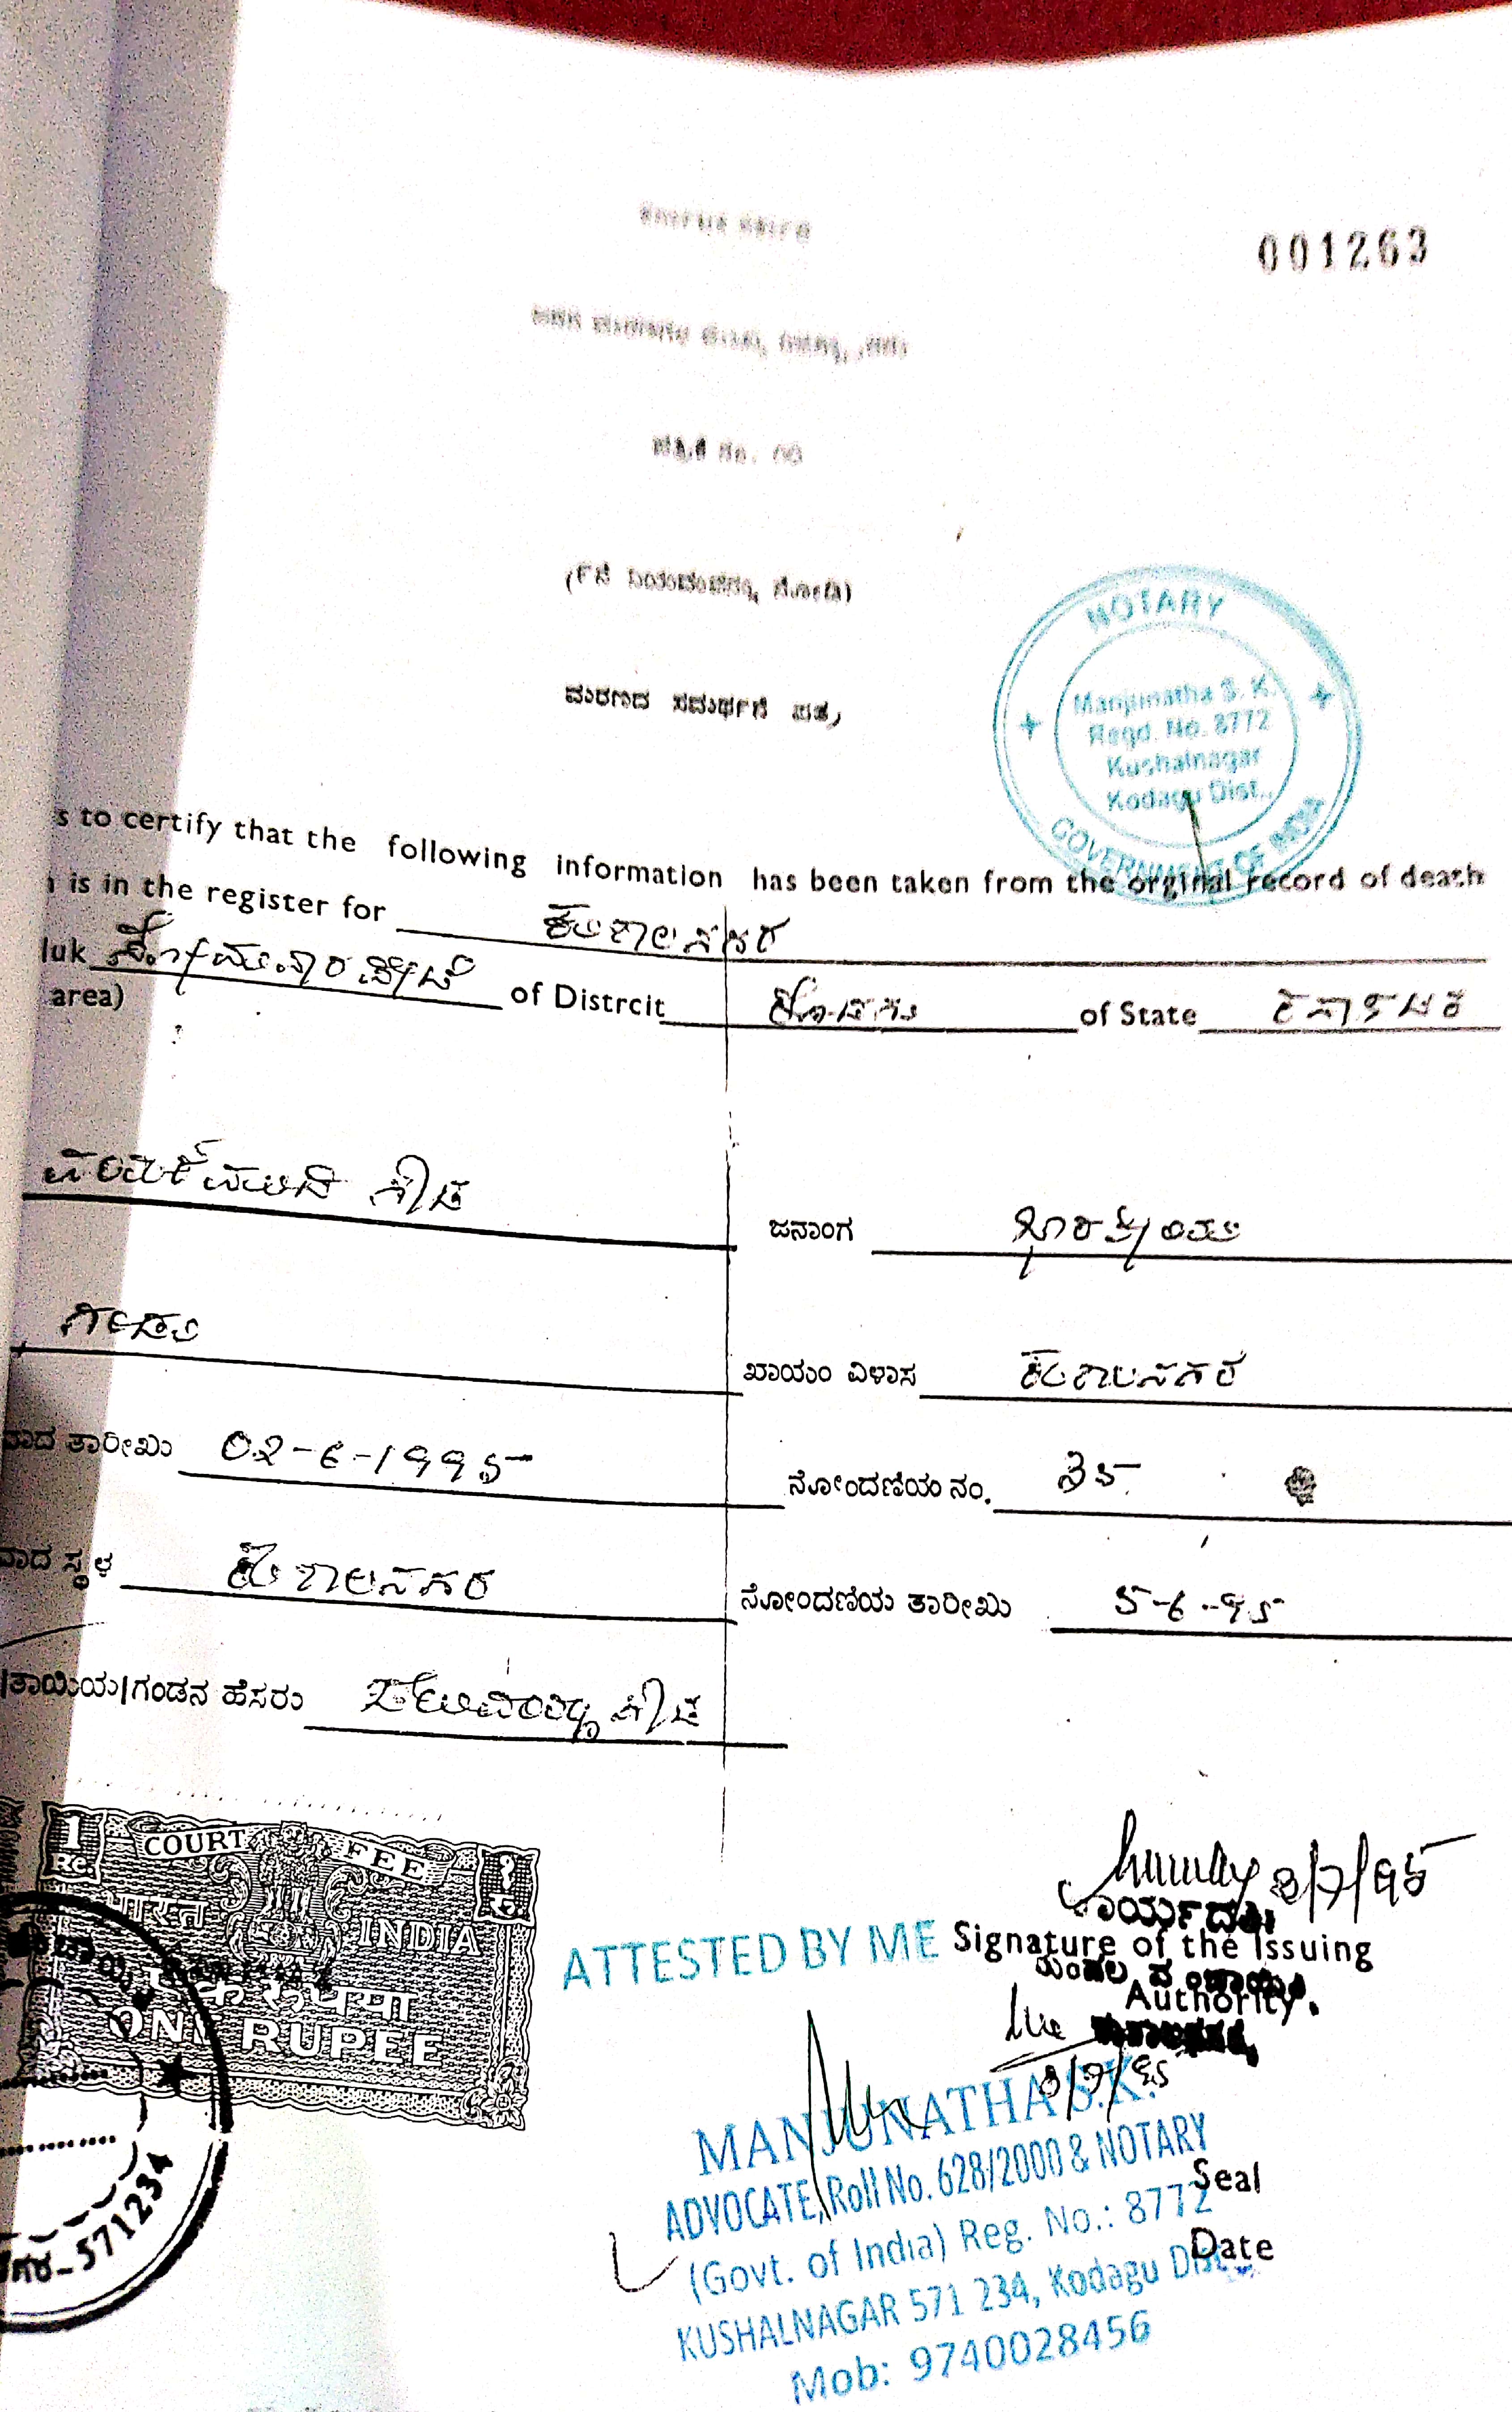 ಕರ್ನಾಟಕ ಸರ್ಕಾರ
001263
ಜನನ ಮರಣಗಳ
ಪತ್ರಿಕೆ ನಂ.
ನೋಡಿ)
ಮರಣದ ಸಮರ್ಥನೆ ಪತ್ರ
NOTARY
Manjunatha S. K.
Regd. No. 8772
Kushalnagar
Kodagu Dist.,
GOVERNMENT OF INDIA
s to certify that the following information has been taken from the orginal record of death
is in the register for ಕುಶಾಲನಗರ
luk ಸೋಮವಾರಪೇಟೆ of Distrcit ಕೊಡಗು of State ಕರ್ನಾಟಕ
area)
ಗೌಡ ಜನಾಂಗ ಭಾರತೀಯ
ಗಂಡು ಖಾಯಂ ವಿಳಾಸ ಕುಶಾಲನಗರ
ವಾದ ತಾರೀಖು 02-6-1995 ನೋಂದಣಿಯ ನಂ. 35
ವಾದ ಸ್ಥಳ ಕುಶಾಲನಗರ ನೋಂದಣಿಯ ತಾರೀಖು 5-6-95
/ತಾಯಿಯ/ಗಂಡನ ಹೆಸರು ಗೌಡ
1 COURT FEE १
RE. रु.
भारत INDIA
एक रुपया
ONE RUPEE
3/7/95
ಕಾರ್ಯದರ್ಶಿ
ATTESTED BY ME Signature of the Issuing
ಮಂಡಲ ಪಂಚಾಯಿತಿ
Authority.
ಕುಶಾಲನಗರ
3/7/95
MANJUNATHA S.K.
ADVOCATE, Roll No. 628/2000 & NOTARY
Seal
(Govt. of India) Reg. No.: 8772
Date
KUSHALNAGAR 571 234, Kodagu Dist.
Mob: 9740028456
ನಗರ-571234